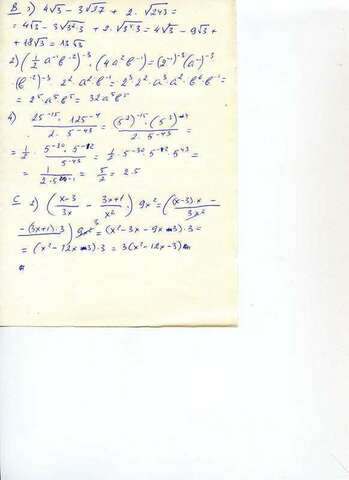 B 1) 4√3 - 3√27 + 2·√243 =
= 4√3 - 3√3²·3 + 2·√3⁴·3 = 4√3 - 9√3 +
+ 18√3 = 13√3
2) (1/2 a⁻¹ b⁻²)⁻³ · (4a² b⁻¹) = (2⁻¹)⁻³ (a⁻¹)⁻³ ·
(b⁻²)⁻³ · 2² · a² · b⁻¹ = 2³ · 2² · a³ · a² · b⁶ · b⁻¹ =
= 2⁵ a⁵ b⁵ = 32a⁵b⁵
4) 25⁻¹⁵ · 125⁻⁴ / 2 · 5⁻⁴³ = (5²)⁻¹⁵ · (5³)⁻⁴ / 2 · 5⁻⁴³ =
= 1/2 · 5⁻³⁰ · 5⁻¹² / 5⁻⁴³ = 1/2 · 5⁻³⁰ · 5⁻¹² · 5⁴³ =
= 5/2 = 2.5
C 2) (x-3 / 3x - 3x+1 / x²) · 9x² = ((x-3)·x -
- (3x+1)·3 / 3x²) 9x² = (x² - 3x - 9x - 3)·3 =
= (x² - 12x - 3)·3 = 3(x² - 12x - 3)